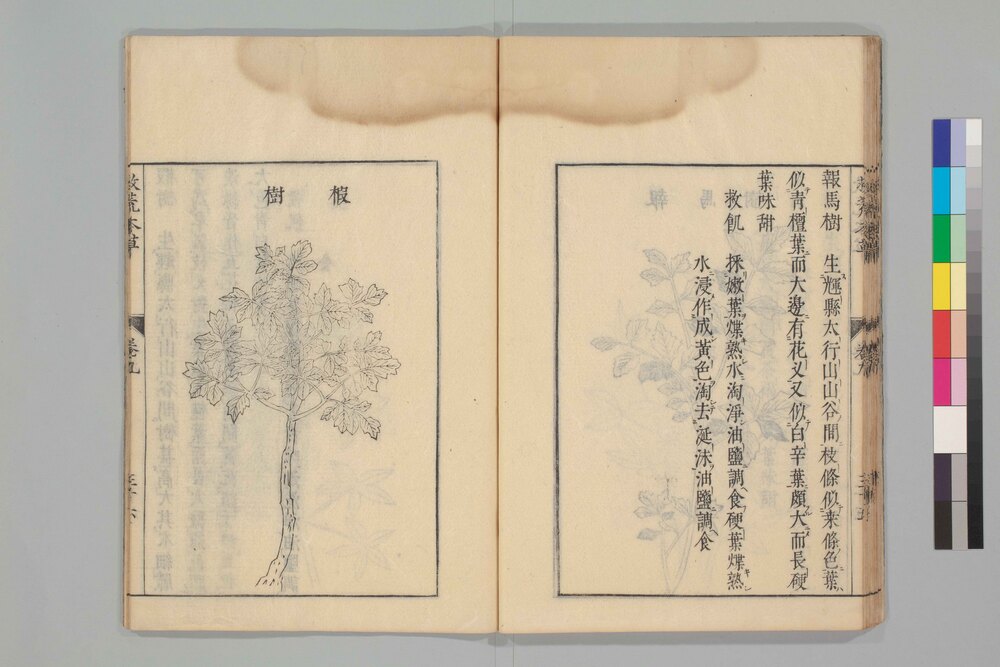 報馬樹 生輝縣太行山山谷間枝條似桑條色葉
似青檀葉而大邊有花叉又似白辛葉頗大而長硬
葉味甜
救飢 採嫩葉煠熟水淘淨油鹽調食硬葉煠熟
水浸作成黃色淘去涎沫油鹽調食
椵樹
救荒本草
卷九